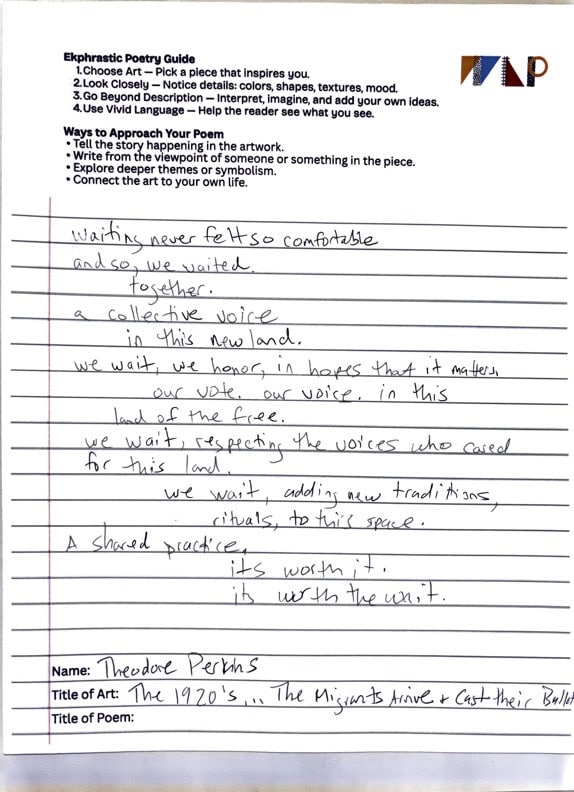 Ekphrastic Poetry Guide
1.Choose Art — Pick a piece that inspires you.
2.Look Closely — Notice details: colors, shapes, textures, mood.
3.Go Beyond Description — Interpret, imagine, and add your own ideas.
4.Use Vivid Language — Help the reader see what you see.
Ways to Approach Your Poem
• Tell the story happening in the artwork.
• Write from the viewpoint of someone or something in the piece.
• Explore deeper themes or symbolism.
• Connect the art to your own life.
waiting never felt so comfortable
and so, we waited.
together.
a collective voice
in this new land.
we wait, we honor, in hopes that it matters,
our vote. our voice. in this
land of the free.
we wait, respecting the voices who cared
for this land.
we wait, adding new traditions,
rituals, to this space.
A shared practice,
its worth it.
its worth the wait.
Name: Theodore Perkins
Title of Art: The 1920's... The Migrants Arrive + Cast their Ballot
Title of Poem: